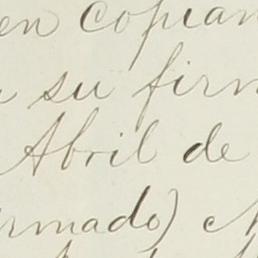 en copian
su firm
Abril de
rmado)